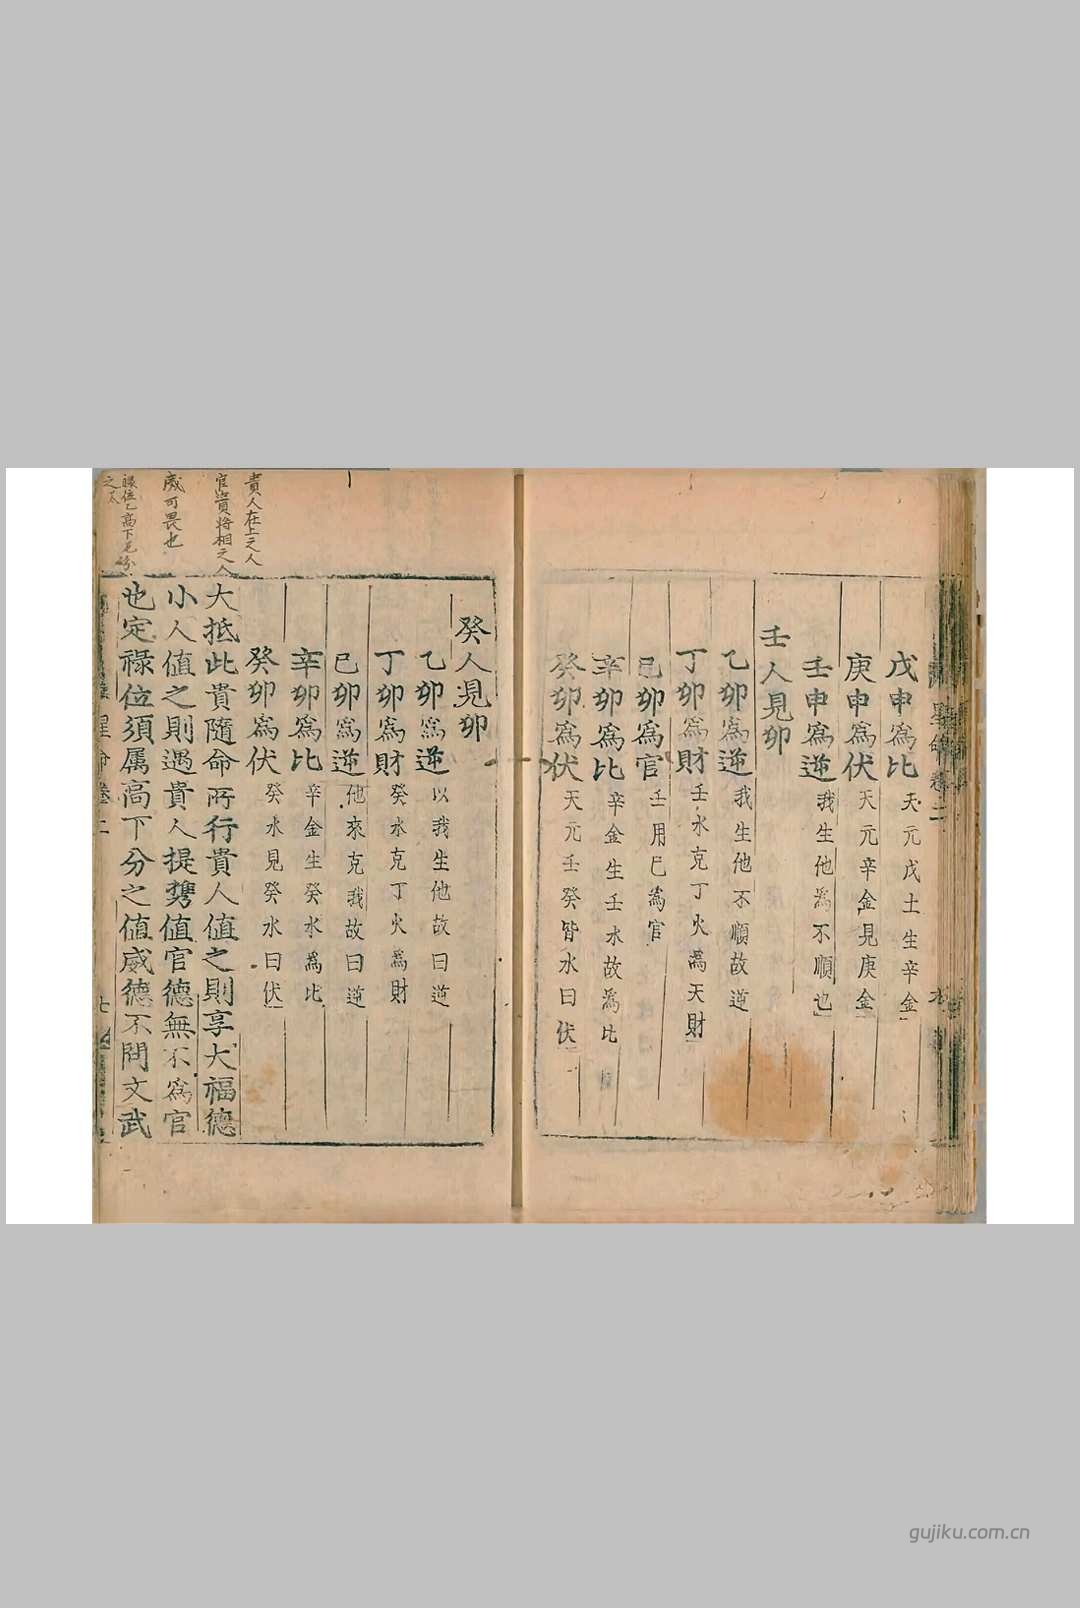 戊申爲比天元戊土生辛金
庚申爲伏天元辛金見庚金
壬申爲逆我生他爲不順也
壬人見卯
乙卯爲逆我生他不順故逆
丁卯爲財壬水克丁火爲天財
己卯爲官壬用己爲官
辛卯爲比辛金生壬水故爲比
癸卯爲伏天元壬癸皆水曰伏
癸人見卯
乙卯爲逆以我生他故曰逆
丁卯爲財癸水克丁火爲財
己卯爲逆他來克我故曰逆
辛卯爲比辛金生癸水爲比
癸卯爲伏癸水見癸水曰伏
大抵此貴隨命所行貴人值之則享大福德
小人值之則遇貴人提携值官德無不爲官
也定祿位須属高下分之值威德不問文武
貴人在上之人
官貴將相之人
威可畏也
星命卷二
七
gujiku.com.cn